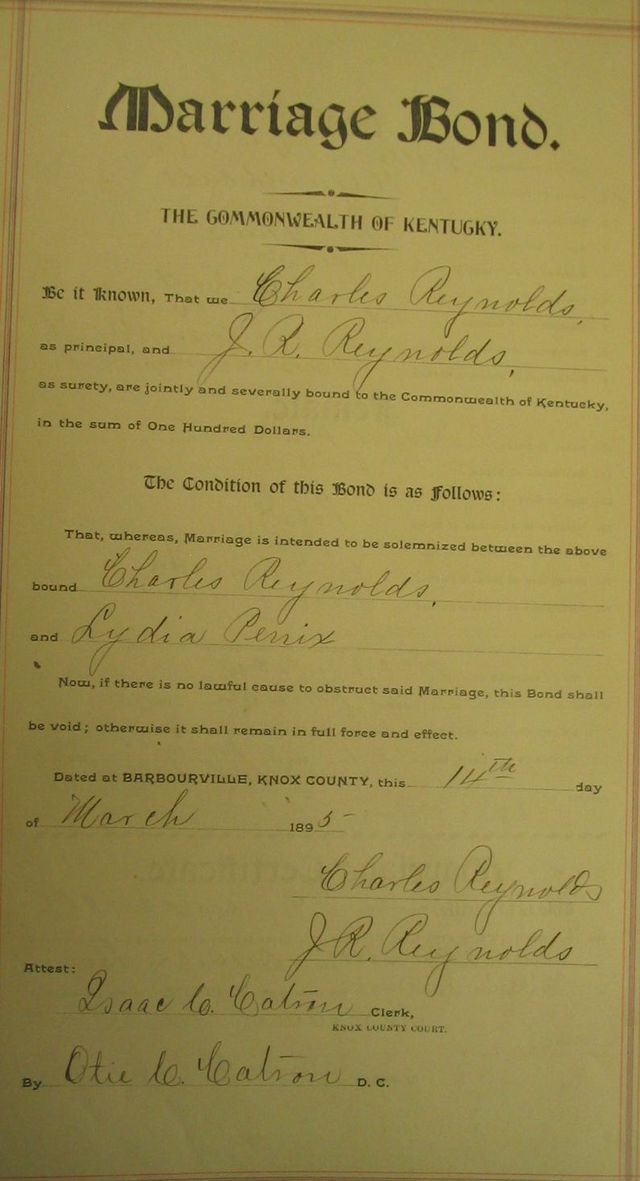 Marriage Bond.
THE COMMONWEALTH OF KENTUCKY.
Be it Known, That we Charles Reynolds,
as principal, and J. R. Reynolds,
as surety, are jointly and severally bound to the Commonwealth of Kentucky,
in the sum of One Hundred Dollars.
The Condition of this Bond is as Follows:
That, whereas, Marriage is intended to be solemnized between the above
bound Charles Reynolds,
and Lydia Penix
Now, if there is no lawful cause to obstruct said Marriage, this Bond shall
be void; otherwise it shall remain in full force and effect.
Dated at BARBOURVILLE, KNOX COUNTY, this 14th day
of March 1895
Charles Reynolds
J R. Reynolds
Attest:
Isaac C. Catron Clerk,
KNOX COUNTY COURT.
By Otie C. Catron D. C.